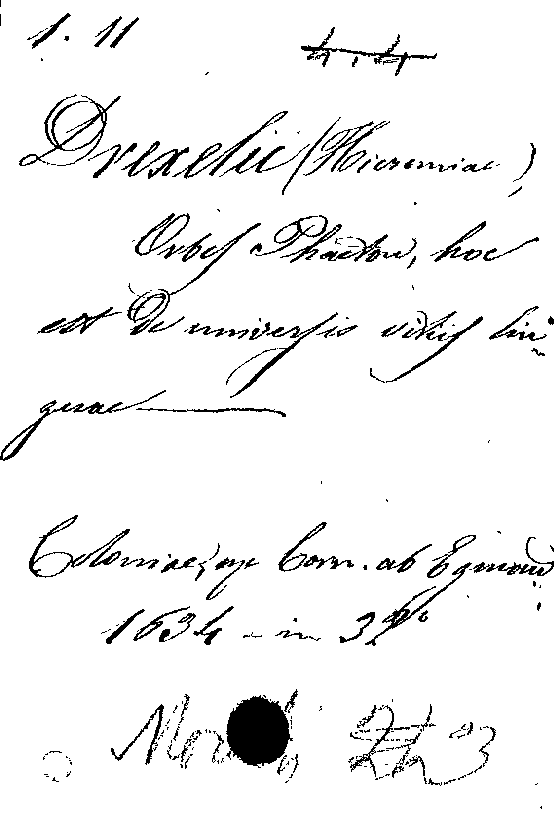 1. 11
4. 4
Drexelii (Hieremiae)
Orbis Phaëton, hoc
est De universis vitiis lin
guae
Coloniae, ap Corn. ab Egmond
1634 - in 32°